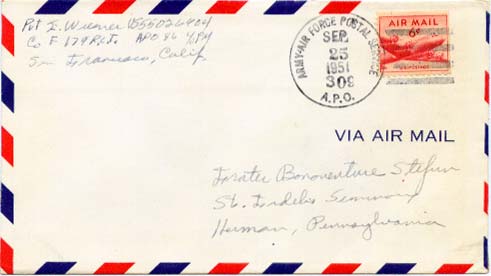 Pvt I. Wiesner US55026404
Co F 179 RCT. APO 86 % PM
San Francisco, Calif
ARMY-AIR FORCE POSTAL SERVICE
SEP
25
1951
309
A.P.O.
AIR MAIL
6¢
U.S. POSTAGE
VIA AIR MAIL
Frater Bonaventure Stefun
St. Fidelis Seminary
Herman, Pennsylvania